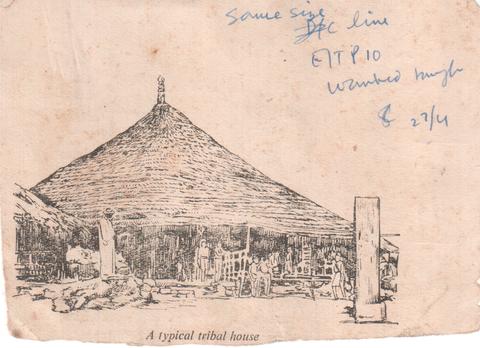 Same size
line
E/TP10
wanted
27/4
A typical tribal house